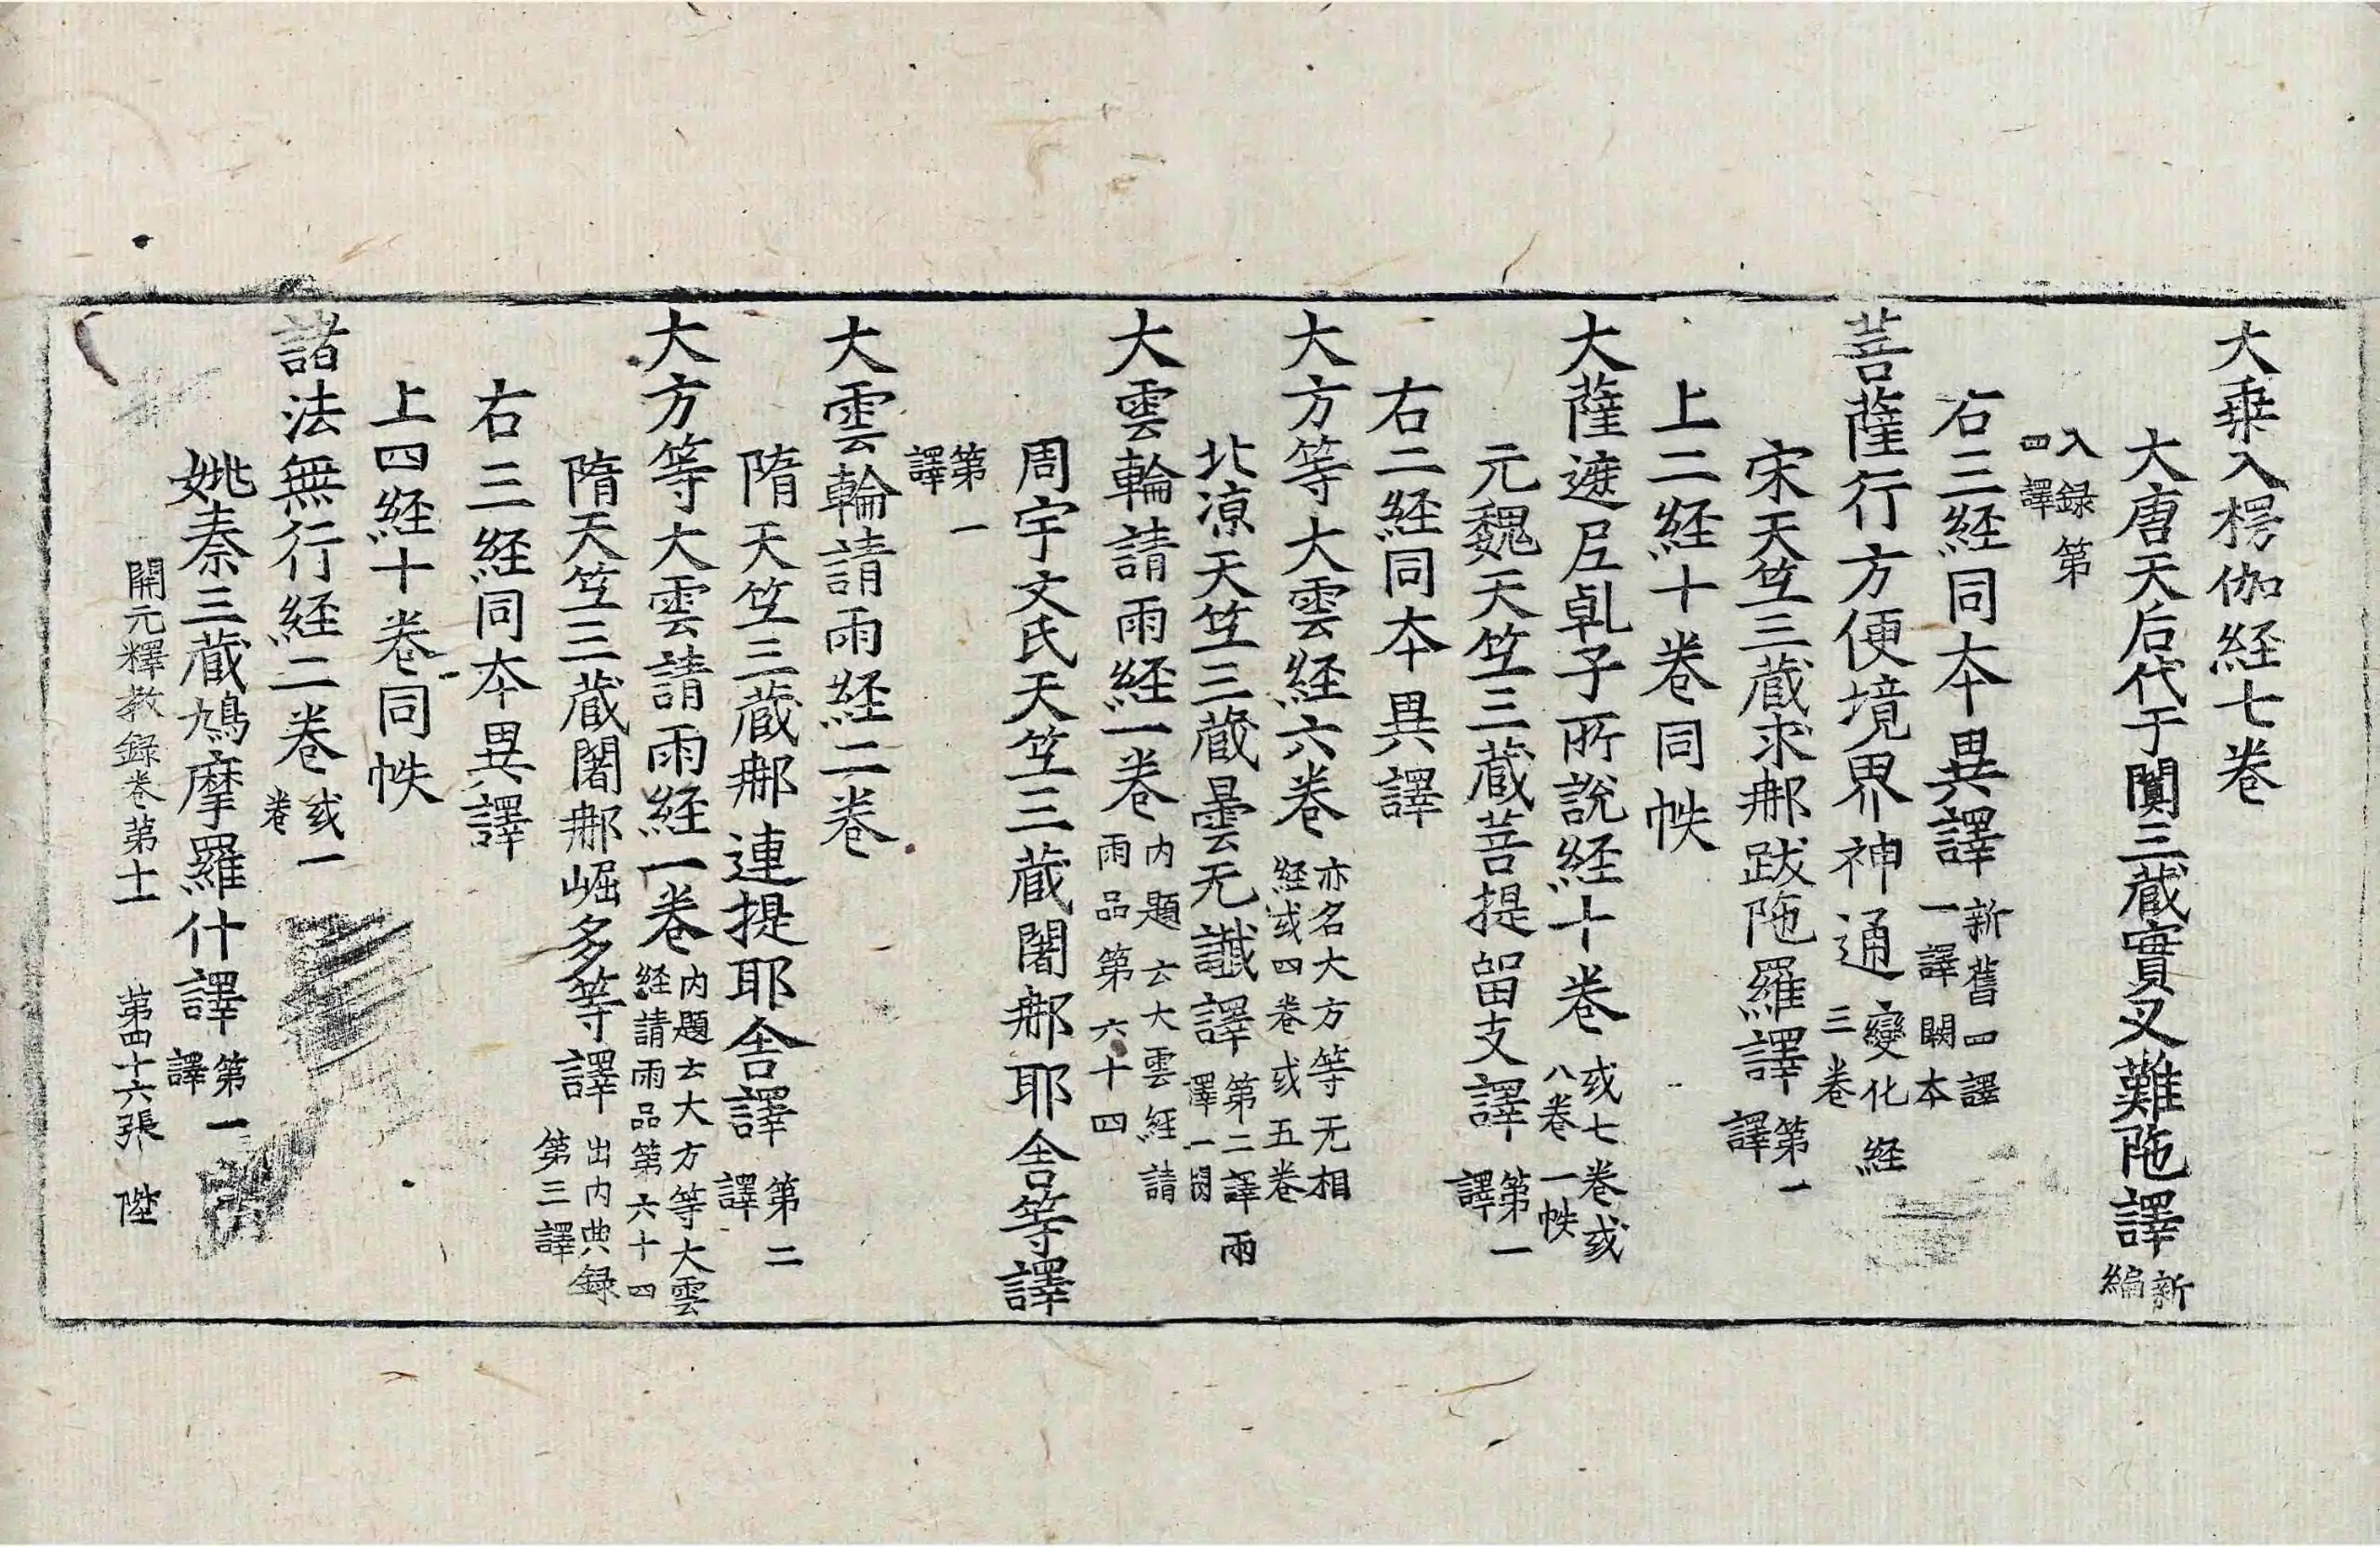 大乗入楞伽経七巻
大唐天后代于闐三蔵實叉難陁譯新編
入録第四譯
右三経同本異譯新舊四譯一譯闕本
菩薩行方便境界神通變化経三巻
宋天竺三蔵求𨚗跋陁羅譯第一譯
上二経十巻同帙
大薩遮尼乹子所說経十巻或七巻或八巻一帙
元魏天竺三蔵菩提留支譯第一譯
右二経同本異譯
大方等大雲経六巻亦名大方等无相経或四巻或五巻
北凉天竺三蔵曇无讖譯第二譯兩譯一闕
大雲輪請雨経一巻内題云大雲経請雨品第六十四
周宇文氏天竺三蔵闍𨚗耶舎等譯
第一譯
大雲輪請雨経二巻
隋天竺三蔵𨚗連提耶舎譯第二譯
大方等大雲請雨経一巻内題云大方等大雲経請雨品第六十四
隋天竺三蔵闍𨚗崛多等譯出内典録第三譯
右三経同本異譯
上四経十巻同帙
諸法無行経二巻或一巻
姚秦三蔵鳩摩羅什譯第一譯
開元釋教録巻第十一 第四十六張 陞